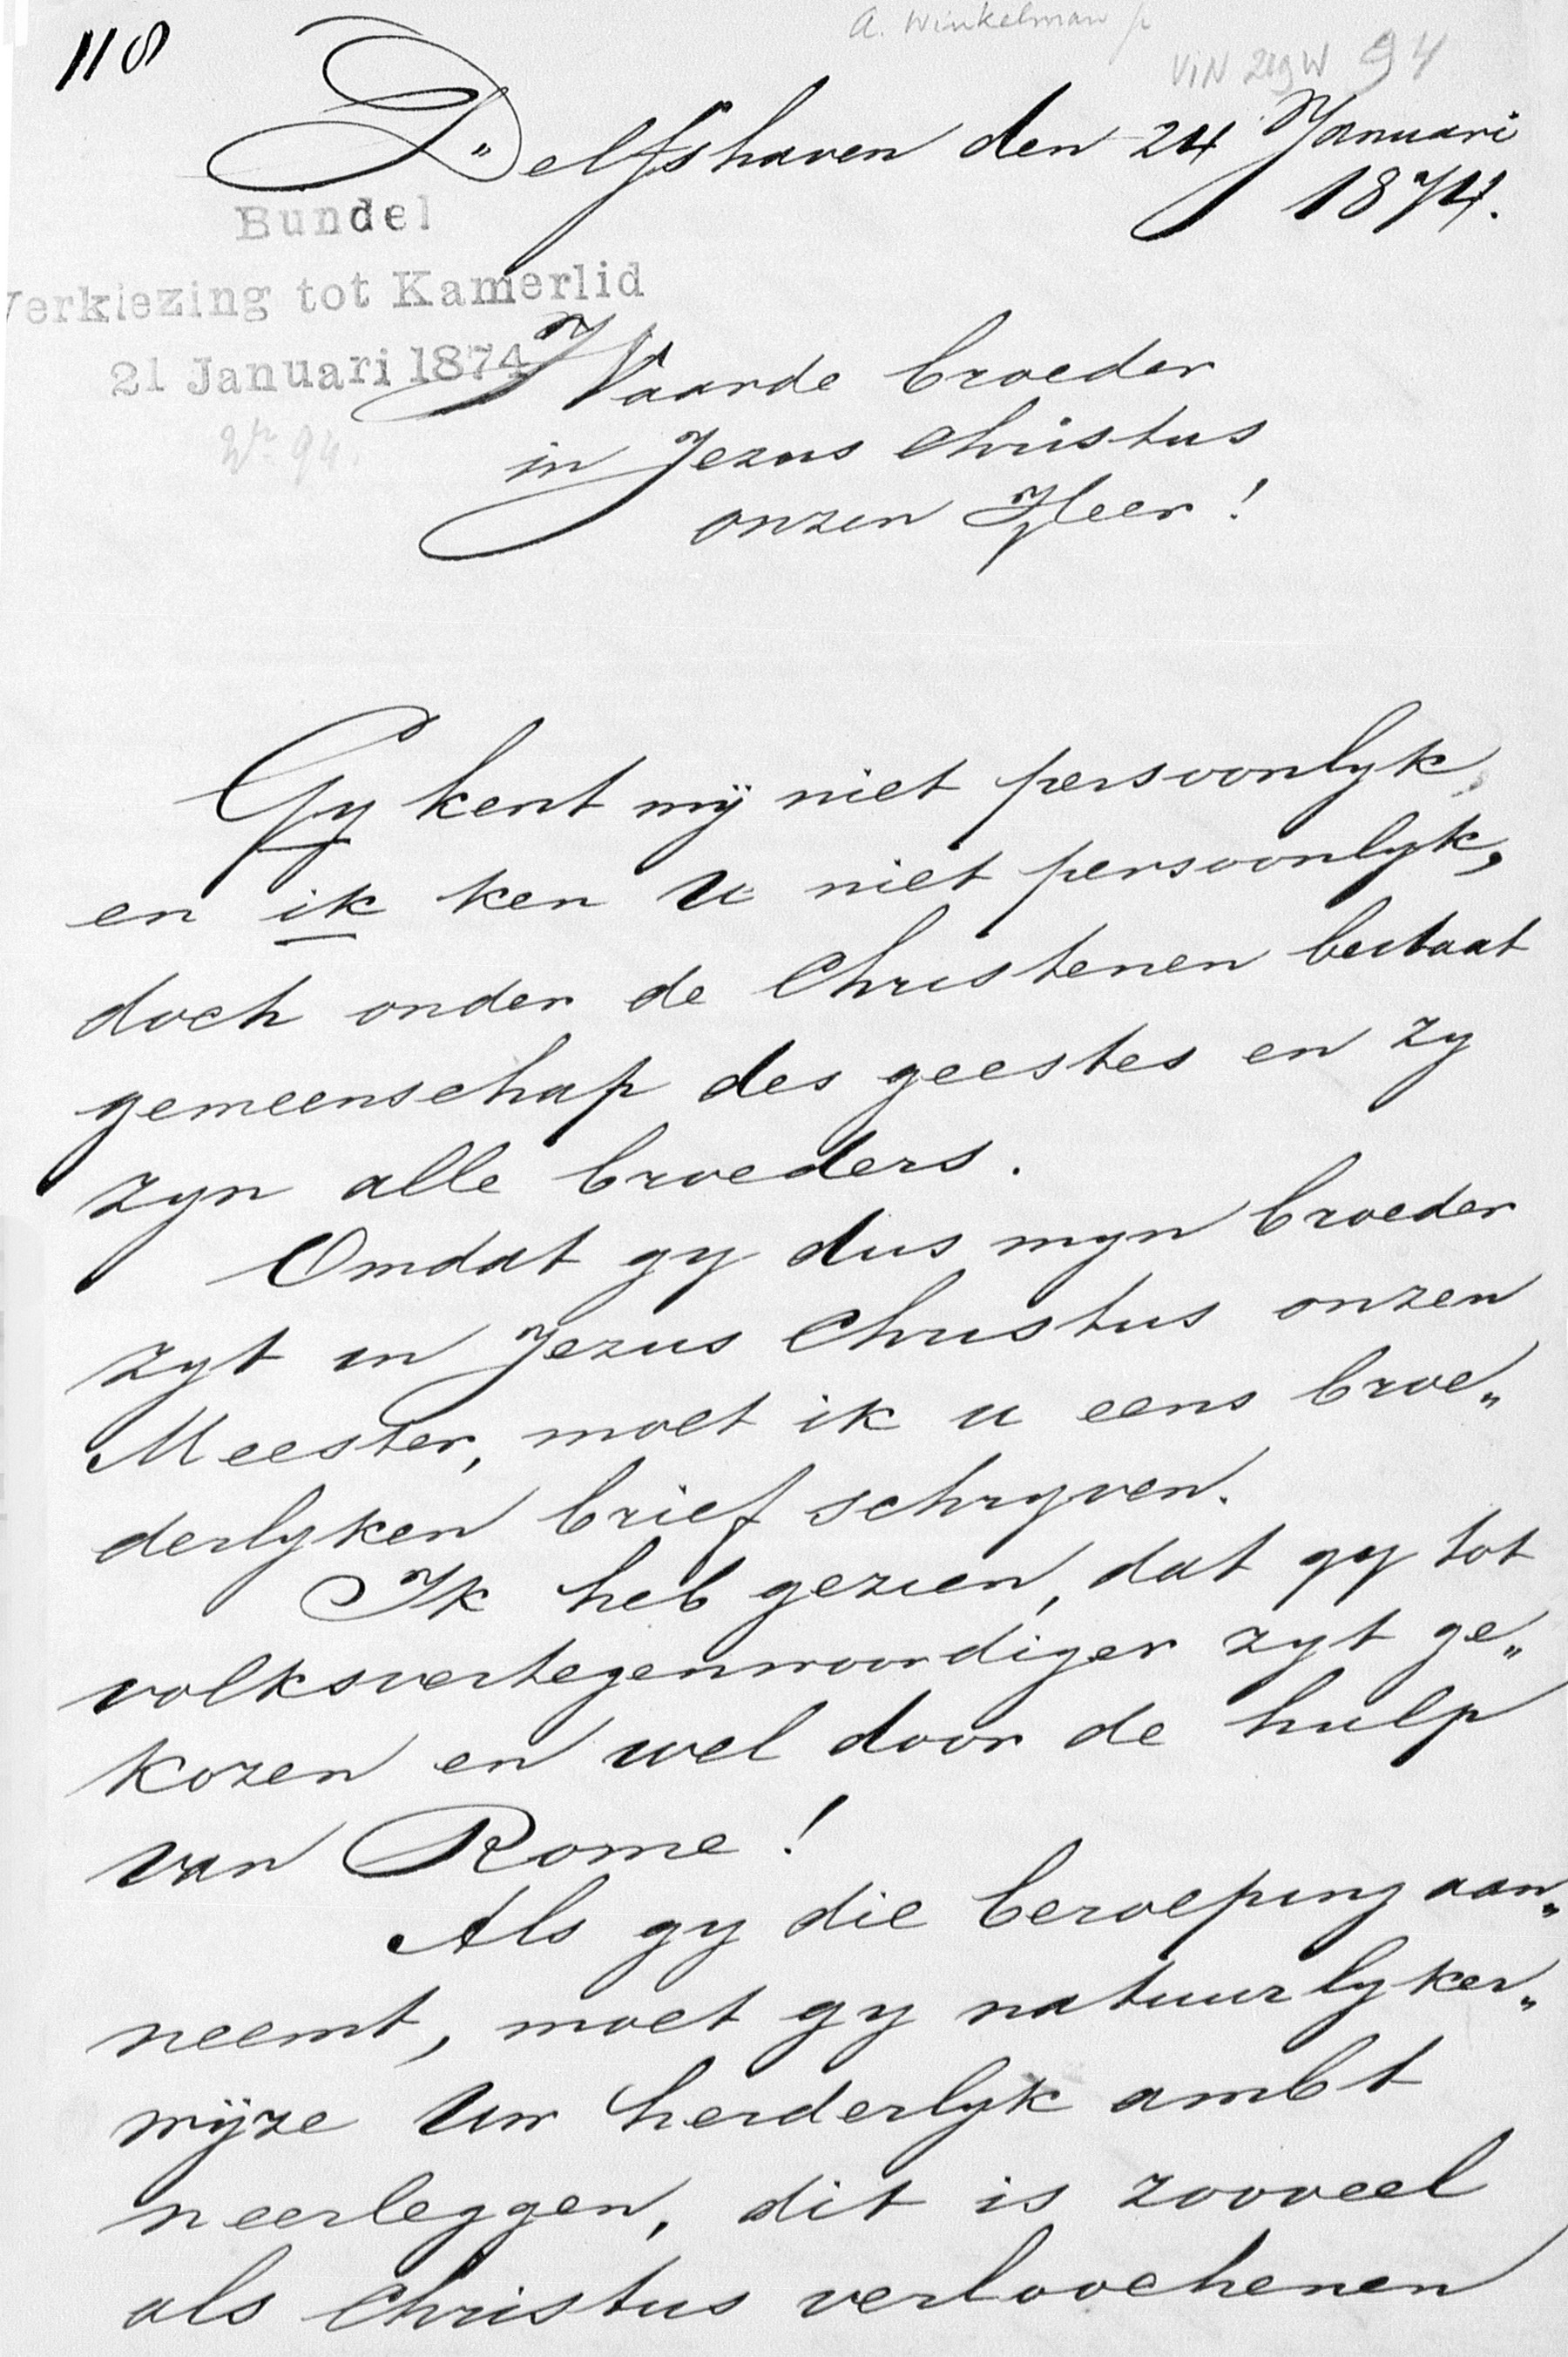 118
A. Winkelman
94
Delfshaven den 24 Januari
1874.
Bundel
Verkiezing tot Kamerlid
21 Januari 1874
94.
Waarde broeder
in Jezus Christus
onzen Heer!
Gy kent mij niet persoonlyk,
en ik ken u niet persoonlyk,
doch onder de Christenen bestaat
gemeenschap des geestes en zy
zyn alle broeders.
Omdat gy dus myn broeder
zyt in Jezus Christus onzen
Meester, moet ik u eens broe„
derlyken brief schryven.
Ik heb gezien, dat gy tot
volksvertegenwoordiger zyt ge„
kozen en wel door de hulp
van Rome!
Als gy die beroeping aan„
neemt, moet gy natuurlyker„
wijze Uw herderlyk ambt
neerleggen, dit is zooveel
als Christus verloochenen